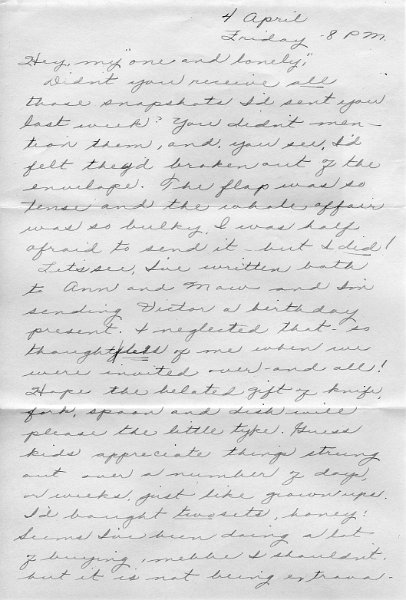 4 April
Friday - 8 P.M.
Hey, my "one and lonely",
Didn't you receive all
those snapshots I'd sent you
last week? You didn't men-
tion them, and, you see, I'd
felt they'd broken out of the
envelope. The flap was so
tense and the whole affair
was so bulky, I was half
afraid to send it - but I did!
Let's see, I've written both
to Ann and Maw and I'm
sending Victor a birthday
present. I neglected that - so
thoughtless of me when we
were invited over - and all!
Hope the belated gift of knife,
fork, spoon and dish will
please the little tyke. Guess
kids appreciate things strung
out over a number of days,
or weeks, just like grown ups.
I'd bought two sets, honey!
Seems I've been doing a lot
of buying, mebbe I shouldn't.
but it is not being extrava-